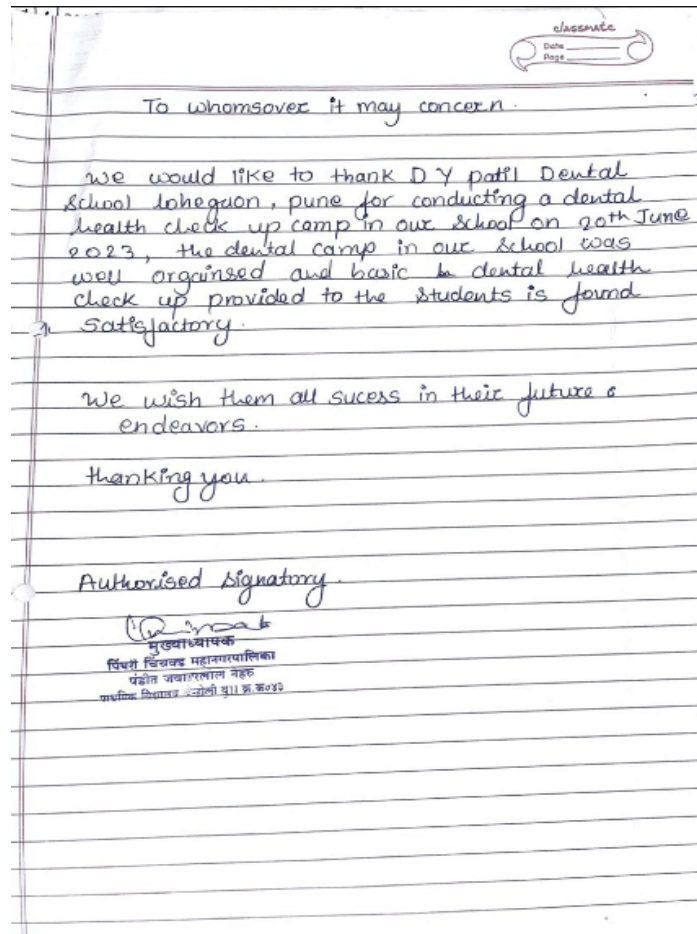 classmate
Date
Page
To whomsover it may concern.
We would like to thank D Y patil Dental
School lohegaon, pune for conducting a dental
health check up camp in our school on 20th June
2023, the dental camp in our school was
well orgainsed and basic dental health
check up provided to the students is found
satisfactory.
We wish them all sucess in their future
endeavors.
thanking you.
Authorised signatory.
मुख्याध्यापक
पिंपरी चिंचवड महानगरपालिका
पंडीत जवाहरलाल नेहरु